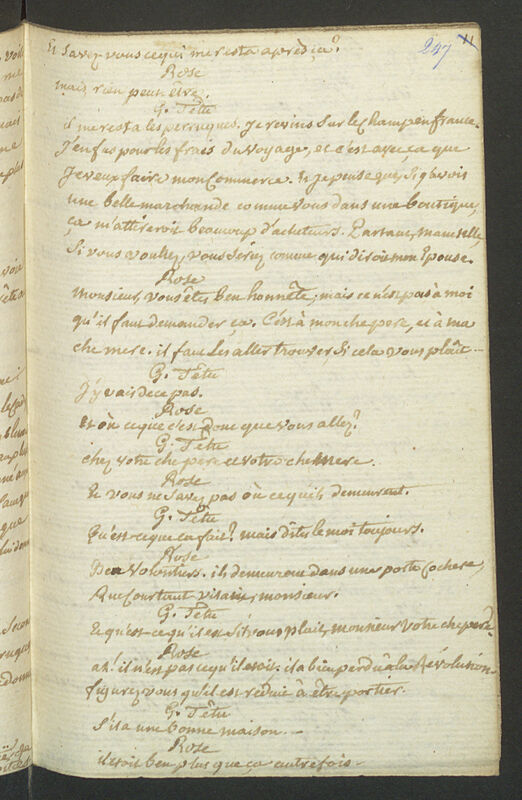 247 11
Et Savez vous ce qui me resta après ça?
Rose
mais, rien peut être.
G. Têtu
il me resta les perruques. Je revins Sur le champ en france.
J'en fus pour les frais du voyage, et c'est avec ça que
Je veux faire mon Commerce. Et Je pense que, Si j'avois
une belle marchande comme Vous dans une boutique,
ça m'attireroit beaucoup d'acheteurs. Partant, mamselle
Si vous voulliez, vous Seriez comme qui diroit mon Epouse.
Rose
Monsieur, vous êtes ben honnête, mais ce n'est pas à moi
qu'il faut demander ça. C'est à mon che pere, et à ma
che mere. il faut les aller trouver, Si cela vous plait -
G. Têtu
J'y vais de ce pas.
Rose
Et où ce que c'est donc que vous allez?
G. Têtu
chez votre che pere et votre che mere.
Rose
Et vous ne Savez pas où ce qu'ils demeurent.
G. Têtu
Qu'est ce que ça fait? mais dites le moi toujours.
Rose
Ben Volontiers. ils demeurent dans une porte Cochere,
Rue Courtaut vilain, monsieur.
G. Têtu
Et qu'est-ce qu'il est Sit vous plait, monsieur Votre che pere?
Rose
ah! il n'est pas ce qu'il etoit. il a bien perdu à la Révolution.
figurez vous qu'il est réduit à être portier.
G. Têtu
S'il a une bonne maison. -
Rose
il etoit ben plus que ça autrefois.